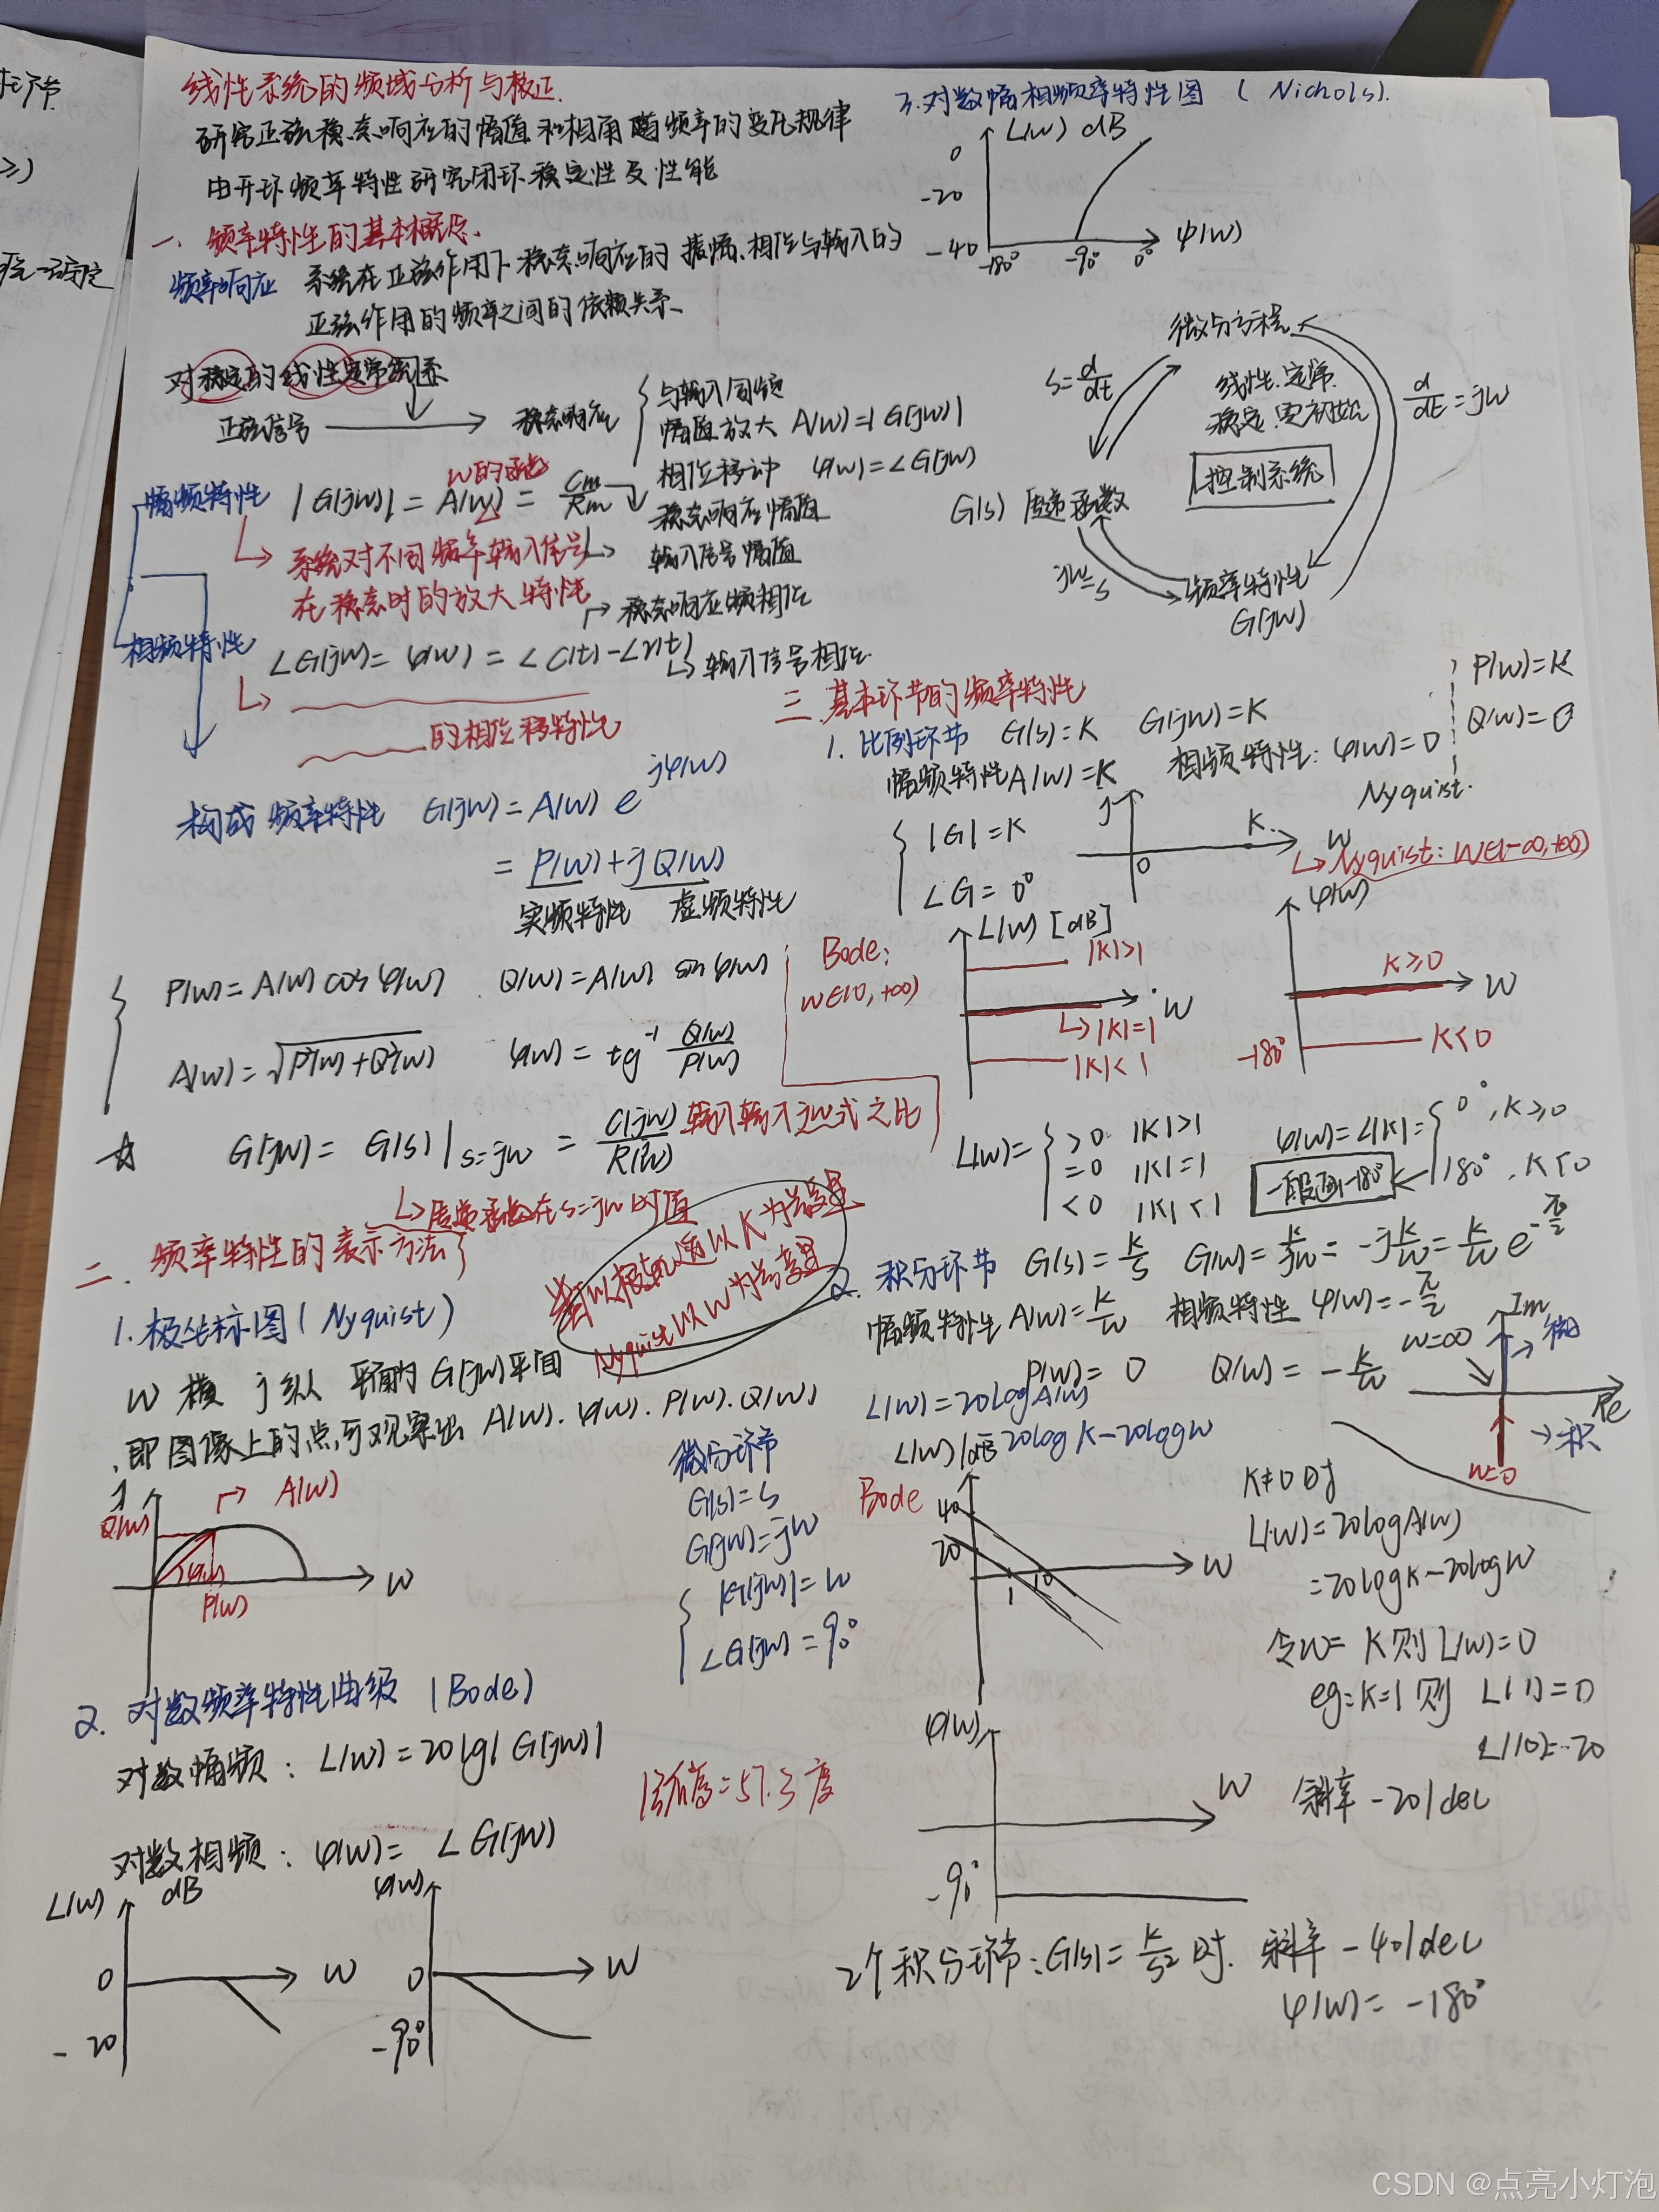 线性系统的频域分析与校正.
研究正弦稳态响应的幅值和相角随频率的变化规律
由开环频率特性研究闭环稳定性及性能
一、频率特性的基本概念.
频率响应 系统在正弦作用下稳态响应的振幅.相位与输入的
正弦作用的频率之间的依赖关系、
对稳定的线性定常系
正弦信号 稳态响应
与输入同频
幅值放大 A(w)=|G(jw)|
相位移动 φ(w)=∠G(jw)
幅频特性 |G(jw)|=A(w)=Cm/Rm
w的函数
稳态响应幅值
输入信号幅值
系统对不同频率输入信号
在稳态时的放大特性
稳态响应频相位
相频特性 ∠G(jw)=φ(w)=∠c(t)-∠r(t)
输入信号相位
的相位移特性
构成频率特性 G(jw)=A(w)e^jφ(w)
=P(w)+jQ(w)
实频特性 虚频特性
P(w)=A(w)cosφ(w) Q(w)=A(w)sinφ(w)
A(w)=√P²(w)+Q²(w) φ(w)=tg⁻¹ Q(w)/P(w)
☆ G(jw)=G(s)|s=jw=C(jw)/R(jw)
传递函数在s=jw时值
二.频率特性的表示方法
1.极坐标图(Nyquist)
w横 j纵 G(jw)平面
即图像上的点,可观察出 A(w).φ(w).P(w).Q(w)
以K为变量
Nyquist以w为变量
Q(w) A(w)
φ(w)
P(w) w
微分环节
G(s)=s
G(jw)=jw
|G(jw)|=w
∠G(jw)=90°
2.对数频率特性曲线(Bode)
对数幅频:L(w)=20lg|G(jw)|
1弧度=57.3度
对数相频:φ(w)=∠G(jw)
L(w) dB φ(w)
0 w 0 w
-20 -90°
3.对数幅相频率特性图(Nichols).
L(w) dB
0
-20
-40 -180° -90° 0° φ(w)
微分方程
s=d/dt
线性.定常.
稳定.零初始
d/dt=jw
控制系统
G(s)传递函数
jw=s
频率特性
G(jw)
三.基本环节的频率特性
1.比例环节 G(s)=K G(jw)=K
P(w)=K
Q(w)=0
幅频特性A(w)=K 相频特性:φ(w)=0
Nyquist.
|G|=K
∠G=0°
j K w
0
Nyquist:w∈(-∞,+∞)
Bode:
w∈(0,+∞)
L(w)[dB] φ(w)
|K|>1 K≥0 w
w
|K|=1
|K|<1 -180° K<0
L(w)= >0 |K|>1
=0 |K|=1
<0 |K|<1
φ(w)=∠|K|= 0°,K≥0
180°,K<0
一般画-180°
2.积分环节 G(s)=K/s G(w)=K/jw=-jK/w=K/w e^-π/2
幅频特性A(w)=K/w 相频特性φ(w)=-π/2
P(w)=0 Q(w)=-K/w
Im
w=∞ 微
Re
积
w=0
L(w)=20logA(w)
L(w)/dB 20logK-20logw
Bode
40
20
1 10 w
K≠0时
L(w)=20logA(w)
=20logK-20logw
令w=K则L(w)=0
eg:K=1则 L(1)=0
L(10)=-20
斜率 -20/dec
φ(w)
w
-90°
2个积分环节:G(s)=K/s²时. 斜率-40/dec
φ(w)=-180°
CSDN @点亮小灯泡